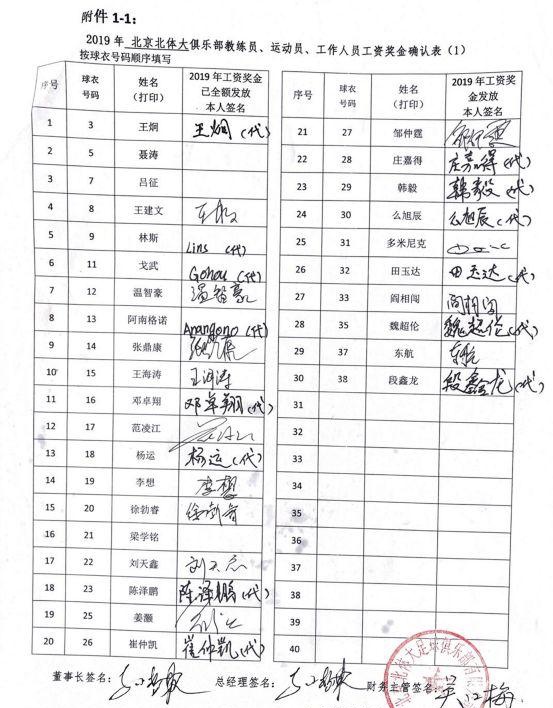 附件 1-1:
2019 年 北京北体大俱乐部教练员、运动员、工作人员工资奖金确认表（1）
按球衣号码顺序填写
序号 球衣号码 姓名（打印） 2019 年工资奖金已全额发放本人签名
1 3 王炯 王炯(代)
2 5 聂涛
3 7 吕征
4 8 王建文
5 9 林斯 Lins (代)
6 11 戈武 Gohou (代)
7 12 温智豪 温智豪
8 13 阿南格诺 Anangono (代)
9 14 张鼎康
10 15 王海涛 王海涛
11 16 邓卓翔 邓卓翔(代)
12 17 范凌江
13 18 杨运 杨运(代)
14 19 李想 李想
15 20 徐勃睿
16 21 梁学铭
17 22 刘天鑫
18 23 陈泽鹏 陈泽鹏(代)
19 25 姜灏
20 26 崔仲凯 崔仲凯(代)
序号 球衣号码 姓名（打印） 2019 年工资奖金发放本人签名
21 27 邹仲霆
22 28 庄嘉得 庄嘉得(代)
23 29 韩毅 韩毅(代)
24 30 么旭辰 么旭辰(代)
25 31 多米尼克
26 32 田玉达 田玉达(代)
27 33 阎相闯
28 35 魏超伦 魏超伦(代)
29 37 东航 东航
30 38 段鑫龙 段鑫龙(代)
31
32
33
34
35
36
37
38
39
40
董事长签名: 总经理签名: 财务主管签名: